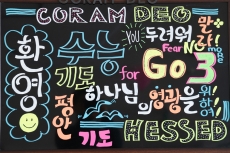 CORAM DEO
환영
수능
기도
for
YOU
두려워
말라
Fear Not
Go 3
평안
하나님의
영광을
위하여
기도
HESSED